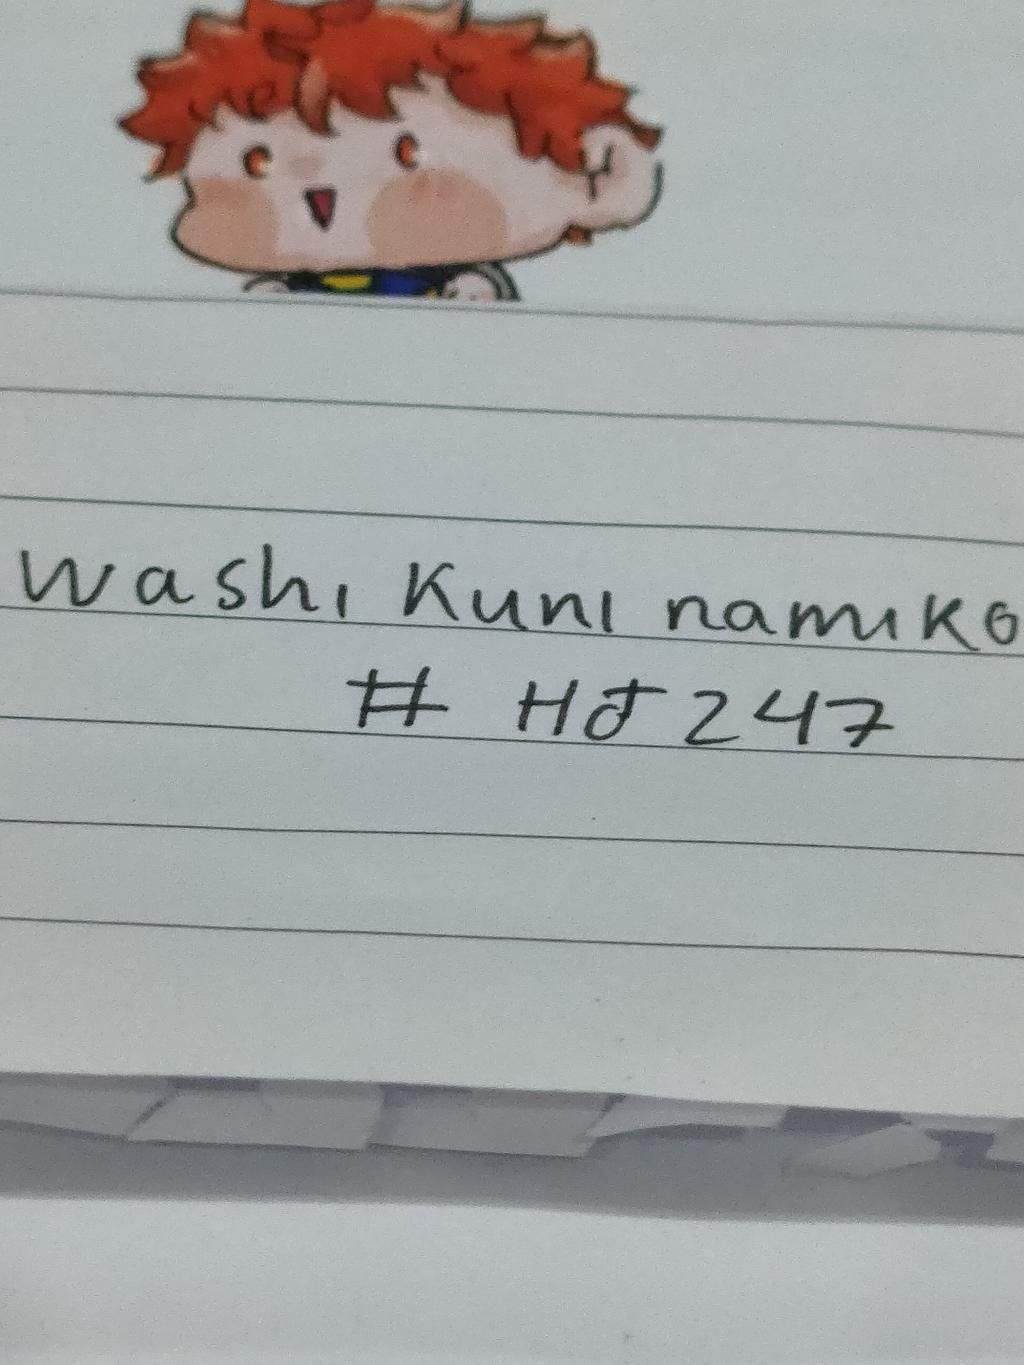 Washi Kuni namiko
# HJ247